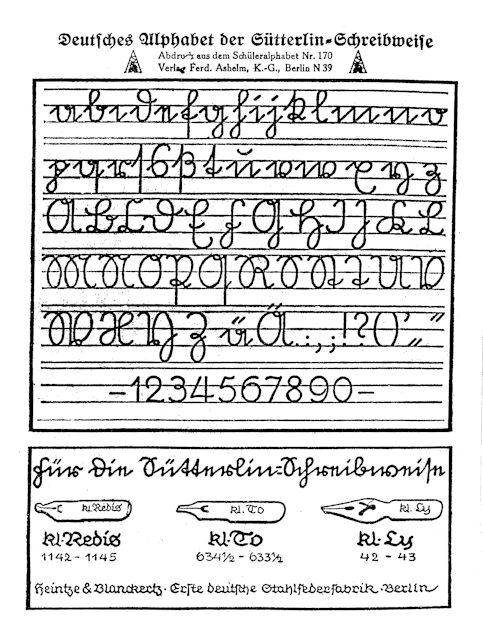 Deutsches Alphabet der Sütterlin=Schreibweise
Abdruck aus dem Schüleralphabet Nr. 170
Verlag Ferd. Ashelm, K.-G., Berlin N 39
a b c d e f g h i j k l m n o
p q r ſ s ß t u v w x y z
A B C D E F G H I J K L
M N O P Q R S T U V
W X Y Z ü Ä . : , ; ! ? ( ) ' „ "
– 1 2 3 4 5 6 7 8 9 0 –
Für die Sütterlin=Schreibweise
kl. Redis kl. To kl. Ly
kl. Redis kl. To kl. Ly
1142 - 1145 634½ - 633½ 42 - 43
Heintze & Blanckertz · Erste deutsche Stahlfederfabrik · Berlin